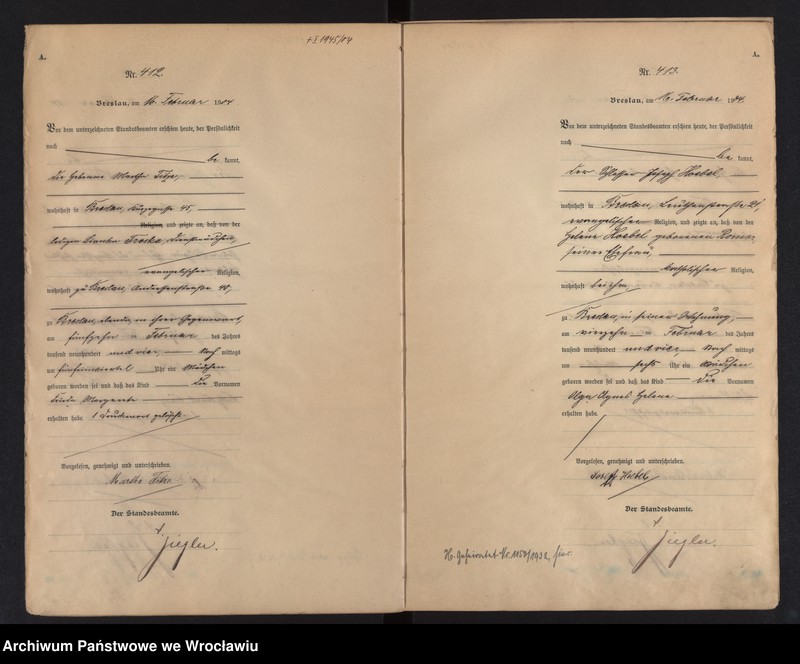 A.
Nr. 412.
Breslau, am 16. Februar 1904
Vor dem unterzeichneten Standesbeamten erschien heute, der Persönlichkeit
nach be kannt,
die Hebamme Martha
wohnhaft in Breslau, 45,
Religion, und zeigte an, daß von der
ledigen
evangelischer Religion,
wohnhaft zu Breslau,
zu Breslau, in ihrer Gegenwart,
am fünfzehn Februar des Jahres
tausend neunhundert und vier, Nach mittags
um Uhr ein Mädchen
geboren worden sei und daß das Kind die Vornamen
Margarete
erhalten habe. 1 Druckwort gelöscht.
Vorgelesen, genehmigt und unterschrieben.
Martha
Der Standesbeamte.
Ziegler.
A.
Nr. 413.
Breslau, am 16. Februar 1904.
Vor dem unterzeichneten Standesbeamten erschien heute, der Persönlichkeit
nach be kannt,
der Schlosser Joseph Hoebel,
wohnhaft in Breslau, 21,
evangelischer Religion, und zeigte an, daß von der
Helene Hoebel geborenen
seiner Ehefrau
katholischer Religion,
wohnhaft bei ihm,
zu Breslau, in seiner Wohnung,
am vierzehn Februar des Jahres
tausend neunhundert und vier, Nach mittags
um sechs Uhr ein Mädchen
geboren worden sei und daß das Kind die Vornamen
Olga Agnes Helene
erhalten habe.
Vorgelesen, genehmigt und unterschrieben.
Josef Hoebel
Der Standesbeamte.
Ziegler.
H. Geheiratet Nr. 1150/1932, hier.
Archiwum Państwowe we Wrocławiu